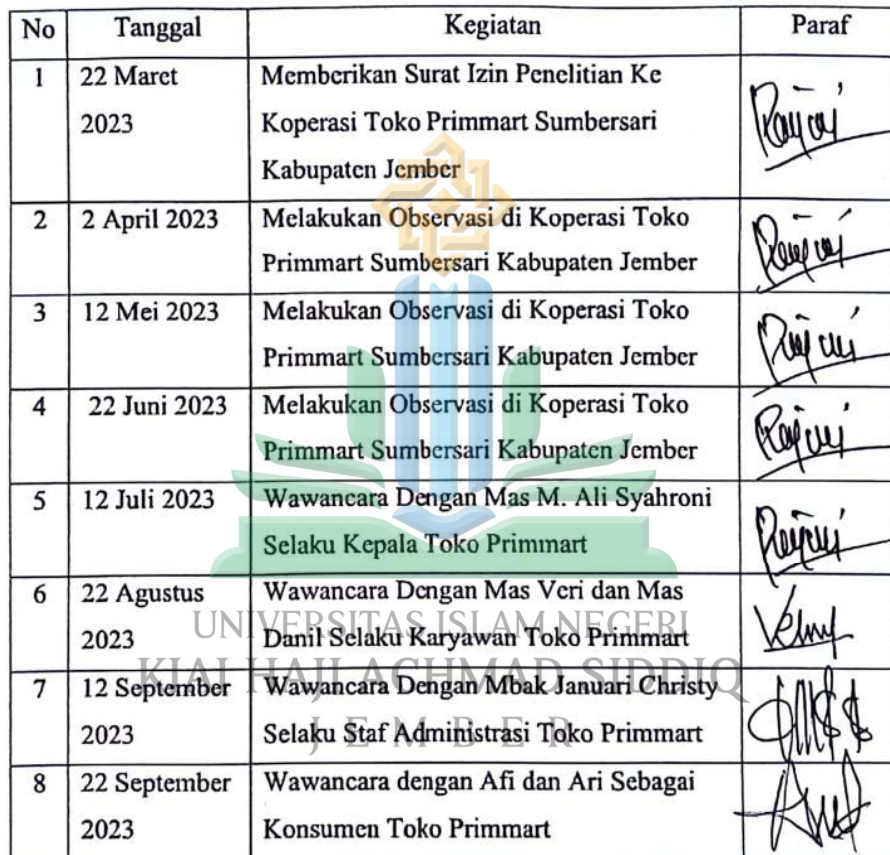 No Tanggal Kegiatan Paraf
1 22 Maret Memberikan Surat Izin Penelitian Ke
2023 Koperasi Toko Primmart Sumbersari
Kabupaten Jember
2 2 April 2023 Melakukan Observasi di Koperasi Toko
Primmart Sumbersari Kabupaten Jember
3 12 Mei 2023 Melakukan Observasi di Koperasi Toko
Primmart Sumbersari Kabupaten Jember
4 22 Juni 2023 Melakukan Observasi di Koperasi Toko
Primmart Sumbersari Kabupaten Jember
5 12 Juli 2023 Wawancara Dengan Mas M. Ali Syahroni
Selaku Kepala Toko Primmart
6 22 Agustus Wawancara Dengan Mas Veri dan Mas
2023 Danil Selaku Karyawan Toko Primmart
UNIVERSITAS ISLAM NEGERI
KIAI HAJI ACHMAD SIDDIQ
JEMBER
7 12 September Wawancara Dengan Mbak Januari Christy
2023 Selaku Staf Administrasi Toko Primmart
8 22 September Wawancara dengan Afi dan Ari Sebagai
2023 Konsumen Toko Primmart